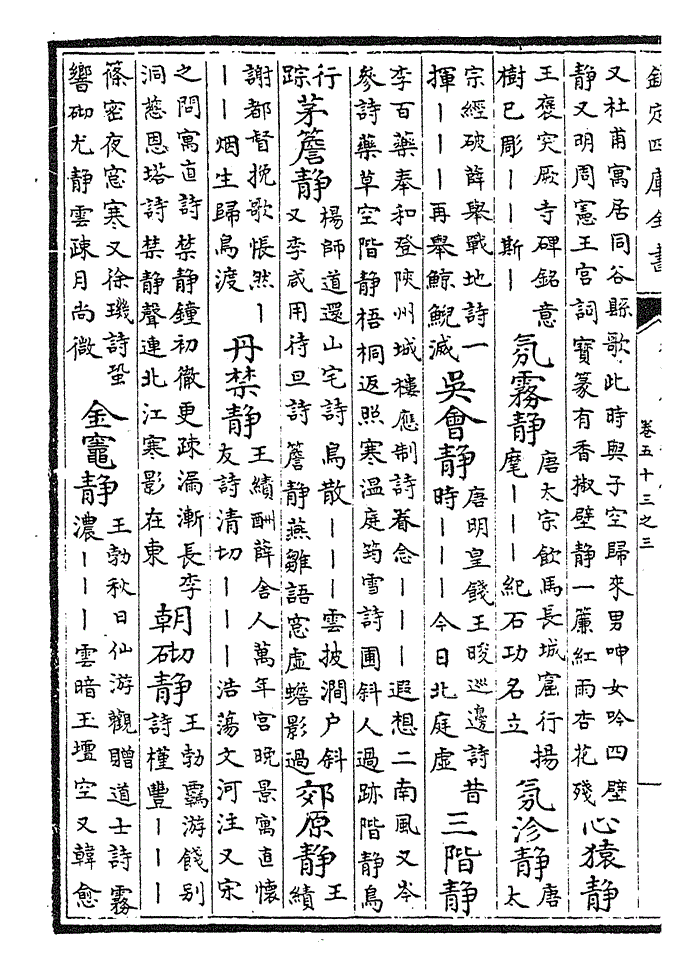 欽定四庫全書
卷五十三之三
又杜甫寓居同谷縣歌此時與子空歸來男呻女吟四壁
靜又明周憲王宮詞寶篆有香椒壁靜一簾紅雨杏花殘
心猿靜
王褒突厥寺碑銘意
樹已彫｜｜斯｜
氛霧靜
唐太宗飲馬長城窟行揚
麾｜｜｜紀石功名立
氛沴靜
唐
太
宗經破薛舉戰地詩一
揮｜｜｜再舉鯨鯢滅
吳會靜
唐明皇餞王晙巡邊詩昔
時｜｜｜今日北庭虛
三階靜
李百藥奉和登陜州城樓應制詩眷念｜｜｜遐想二南風又岑
參詩藥草空階靜梧桐返照寒温庭筠雪詩圃斜人過跡階靜鳥
行
踪
茅簷靜
楊師道還山宅詩鳥散｜｜｜雲披澗户斜
又李咸用待旦詩簷靜燕雛語窓虛蟾影過
郊原靜
王
績
謝都督挽歌悵然｜
｜｜烟生歸鳥渡
丹禁靜
王績酬薛舍人萬年宮晩景寓直懷
友詩清切｜｜｜浩蕩文河注又宋
之問寓直詩禁靜鐘初徹更疎漏漸長李
洞慈恩塔詩禁靜聲連北江寒影在東
朝砌靜
王勃羈游餞别
詩槿豐｜｜｜
篠密夜窓寒又徐璣詩蛩
響砌尤靜雲疎月尚微
金竈靜
王勃秋日仙游觀贈道士詩霧
濃｜｜｜雲暗玉壇空又韓愈